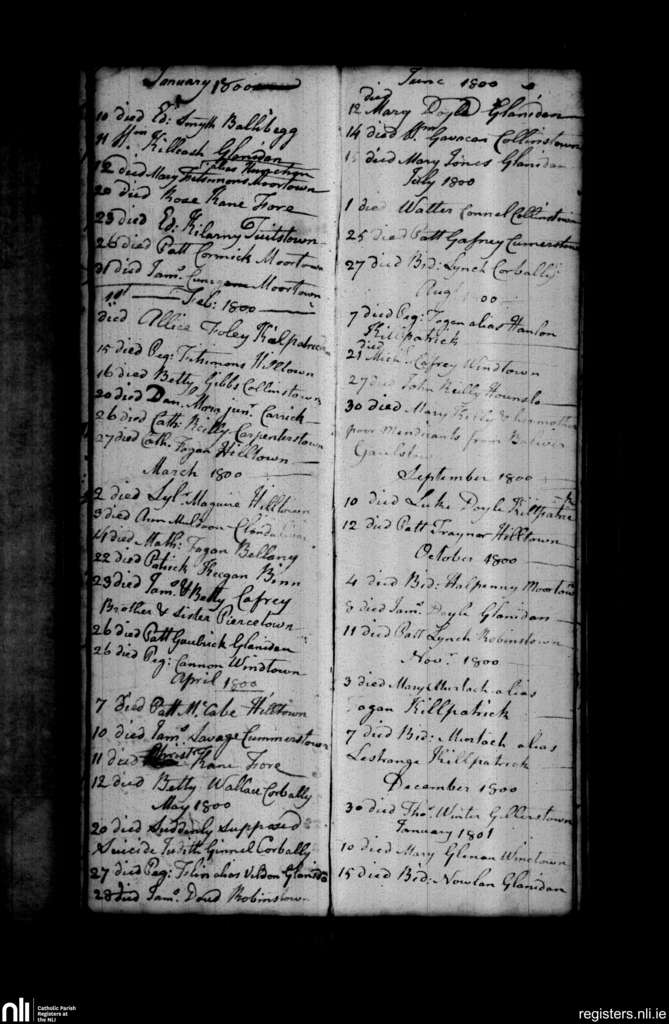 January 1800
10 died Ed: Smyth Ballibegg
11 Killeash Glanidan
alias
12 died Mary Fitsimons Moortown
20 died Rose Kane Fore
25 died Ed: Kilarny Tuitstown
26 died Patt Cormick Moortown
31 died Jams. Moortown
1st Feb: 1800
died Allice Foley Kilpatrick
15 died Peg: Fitsimons Hilltown
16 died Betty Gibbs Collinstown
20 died Dan. Mona junr. Carrick
26 died Cath: Reilly Carpenterstown
27 died Cath: Fagan Hilltown
March 1800
2 died Sylr. Maguire Hilltown
3 died Ann Muldoon
14 died Math: Fagan Bellany
22 died Patrick Keegan Binn
23 died Jams. & Betty Cafrey
Brother & Sister Piercetown
26 died Patt Gaulrick Glanidan
26 died Peg: Cannon Windtown
April 1800
7 died Patt McCabe Hilltown
10 died Jams. Savage Cummerstown
11 died Christr. Kane Fore
12 died Betty Wallace Corbally
May 1800
20 died Suddenly Supposed
Suicide Judith Ginnel Corbally
27 died Peg: alias Glanidan
28 died Jams. Doud Robinstown
June 1800
died
12 Mary Doyle Glanidan
14 died Wm. Gavacan Collinstown
15 died Mary Jones Glanidan
July 1800
1 died Walter Connel Collinstown
25 died Patt Gafney Cumerstown
27 died Bid: Lynch Corbally
Augt 1800
7 died Peg: Fagan alias Hanlon
Killpatrick
died
21 Michl. Cafrey Windtown
27 died John Reilly
30 died Mary Reilly & her mother
poor Mendicants from
September 1800
10 died Luke Doyle Killpatrick
12 died Patt Traynor Hilltown
October 1800
4 died Bid: Halpenny Moortown
8 died Jams. Doyle Glanidan
11 died Patt Lynch Robinstown
Novr. 1800
3 died Mary Murtach alias
Fagan Killpatrick
7 died Bid: Murtach alias
Lestrange Killpatrick
December 1800
30 died Thos. Winter Gillerstown
January 1801
10 died Mary Glenan Winetown
15 died Bid: Nowlan Glanidan
nli
Catholic Parish
Registers at
the NLI
registers.nli.ie